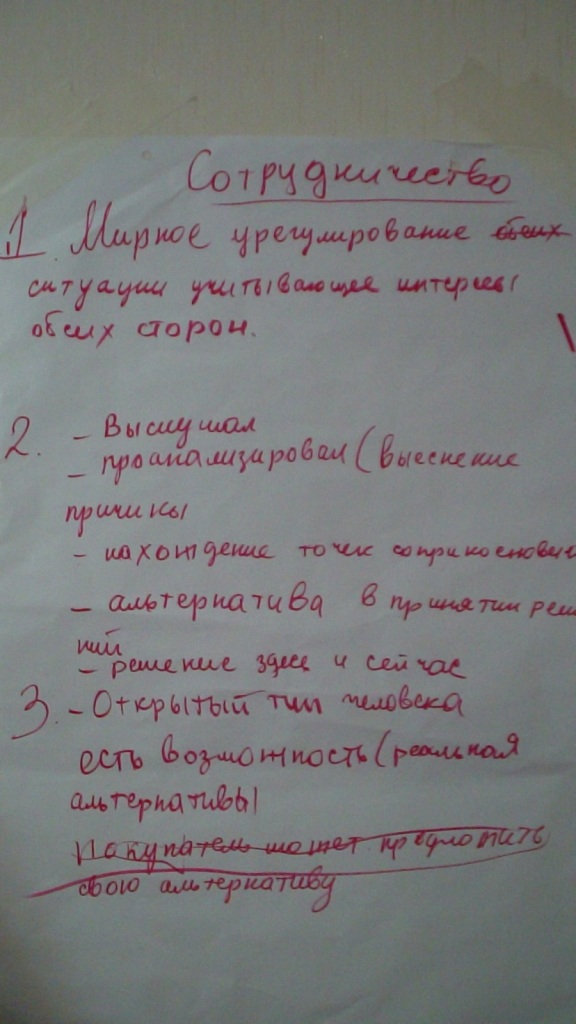 Сотрудничество
1. Мирное урегулирование обеих
ситуации учитывающее интересы
обеих сторон.
2. – Выслушал
– проанализировал (выеснение
причины
– нахождение точек соприкосновения
– альтернатива в принятии реше
ний
– решение здесь и сейчас
3. – Открытый тип человека
есть возможность (реальная
альтернативы)
Покупатель может предложить
свою альтернативу